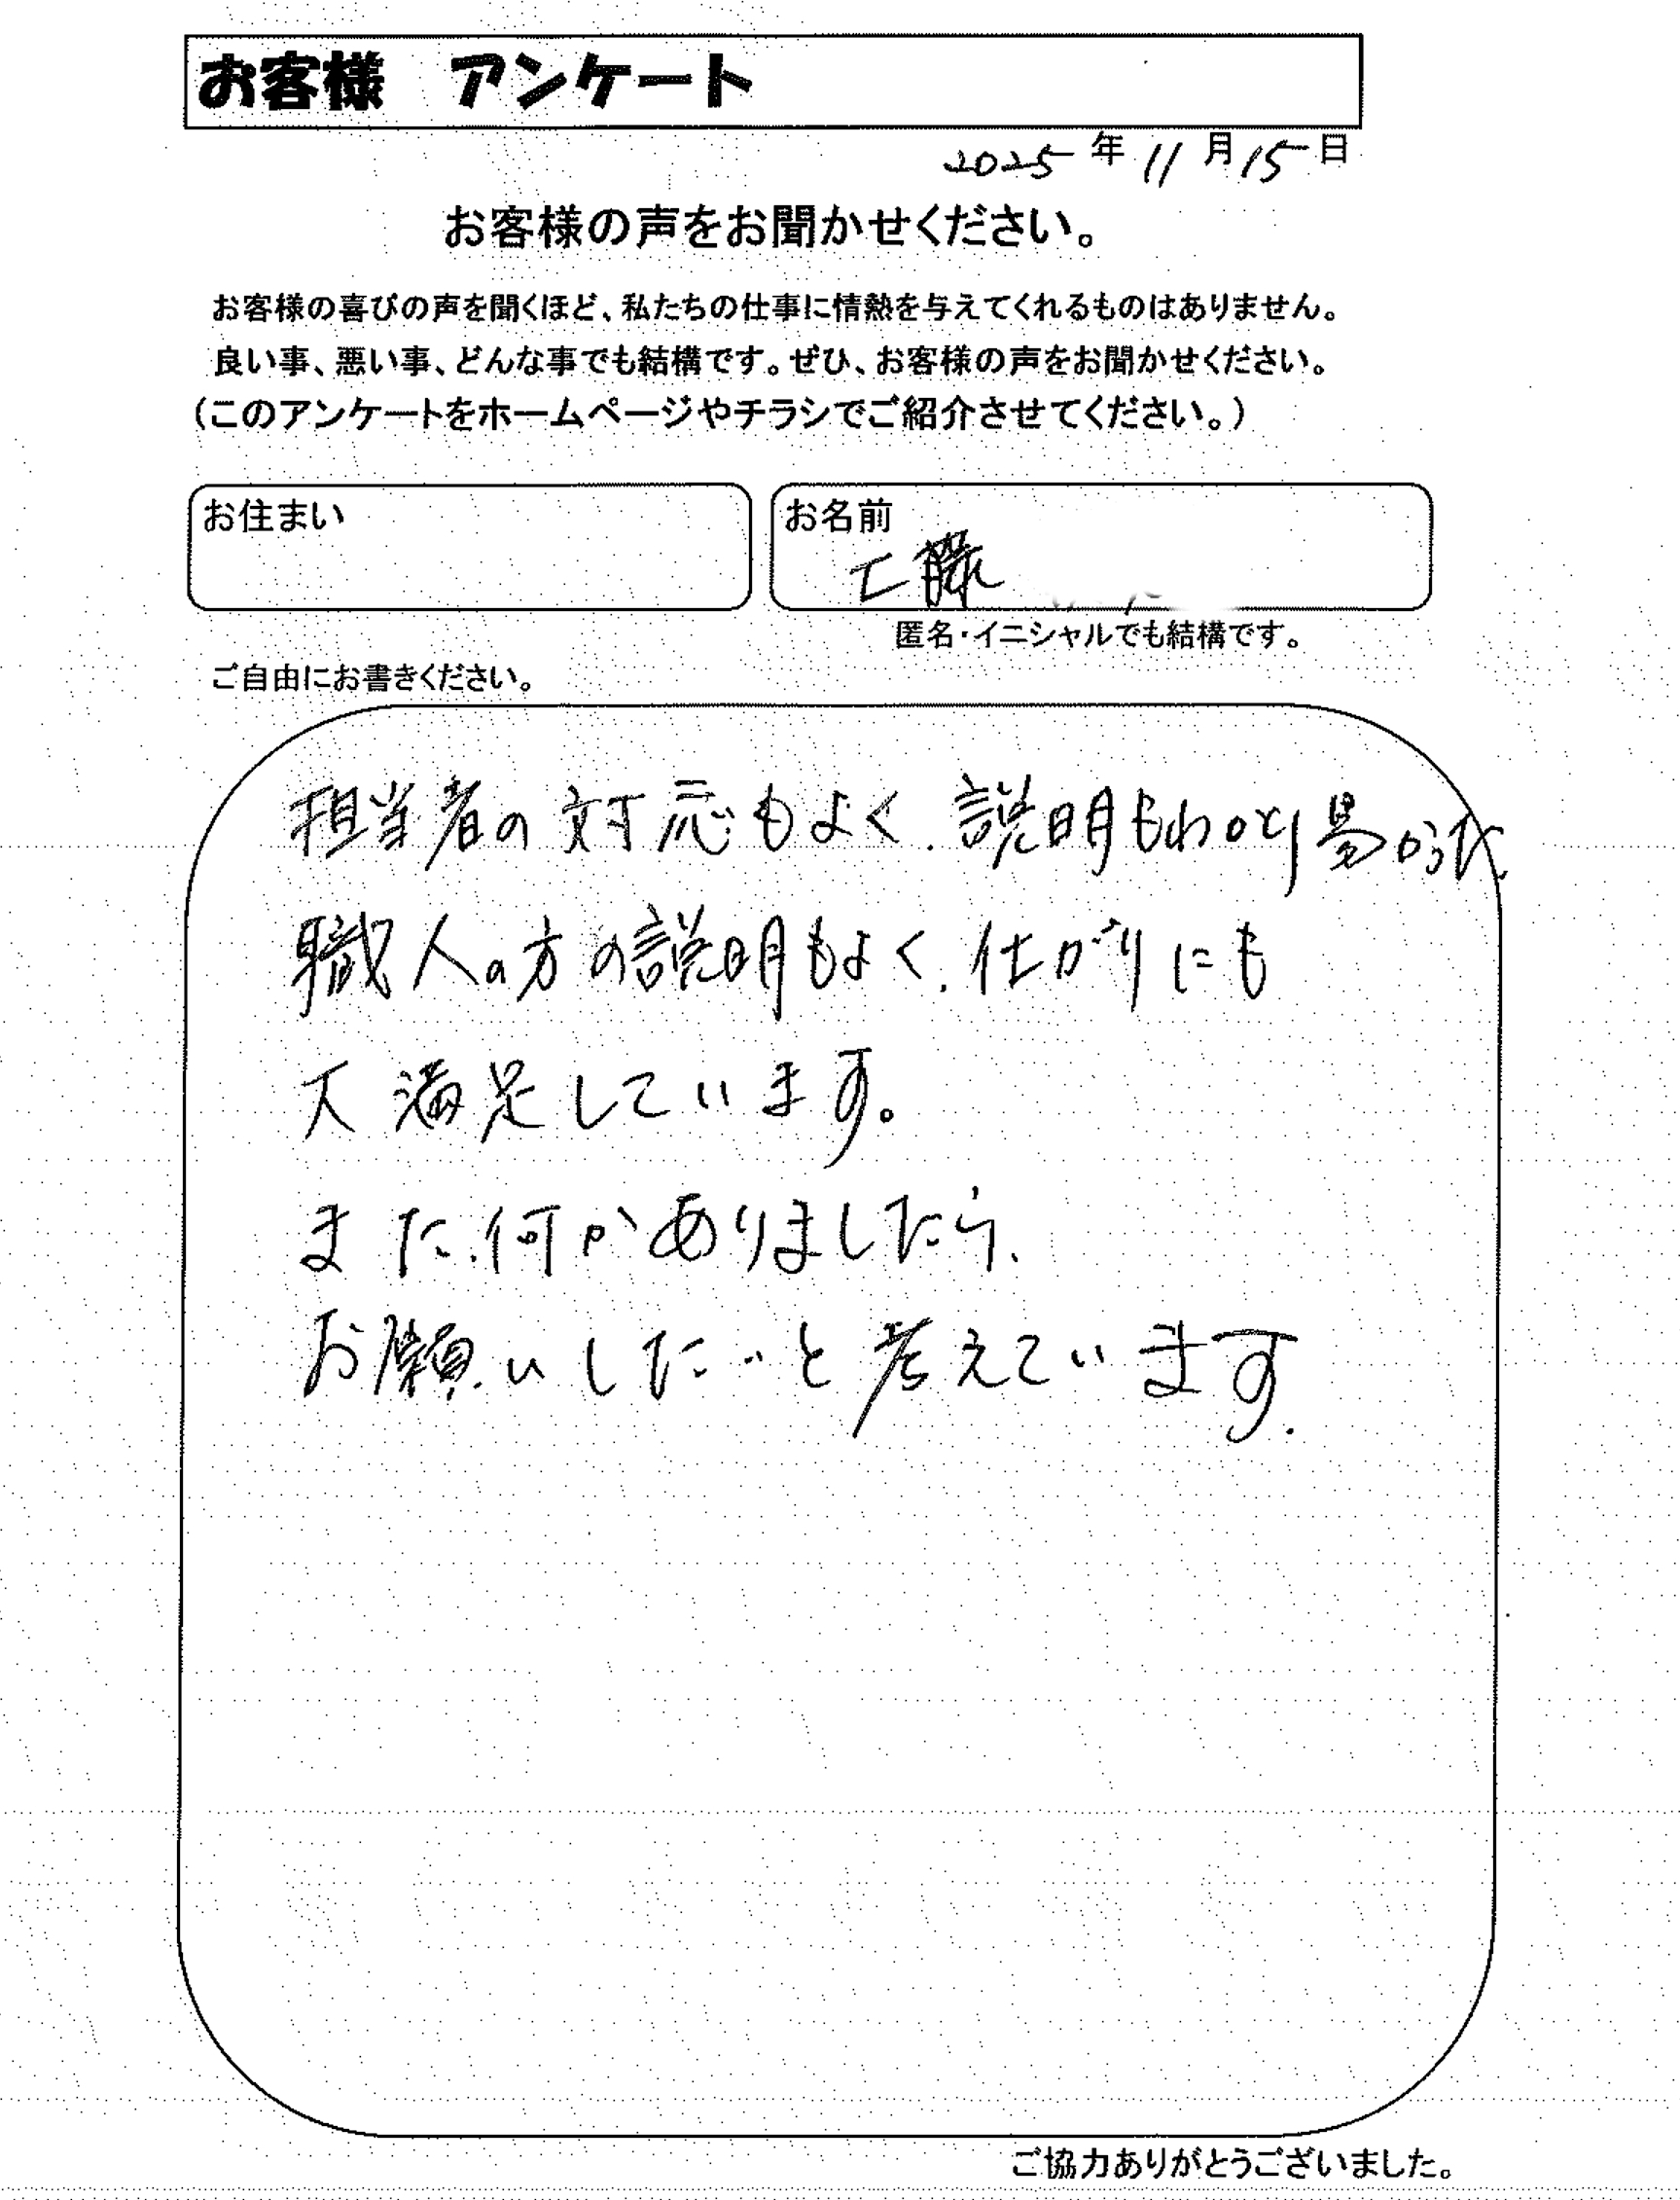 お客様 アンケート
2025年11月15日
お客様の声をお聞かせください。
お客様の喜びの声を聞くほど、私たちの仕事に情熱を与えてくれるものはありません。
良い事、悪い事、どんな事でも結構です。ぜひ、お客様の声をお聞かせください。
（このアンケートをホームページやチラシでご紹介させてください。）
お住まい
お名前
工藤
匿名・イニシャルでも結構です。
ご自由にお書きください。
担当者の対応もよく、説明もわかり易かった、
職人の方の説明もよく、仕がりにも
大満足しています。
また、何かありましたら、
お願いしたいと考えています。
ご協力ありがとうございました。